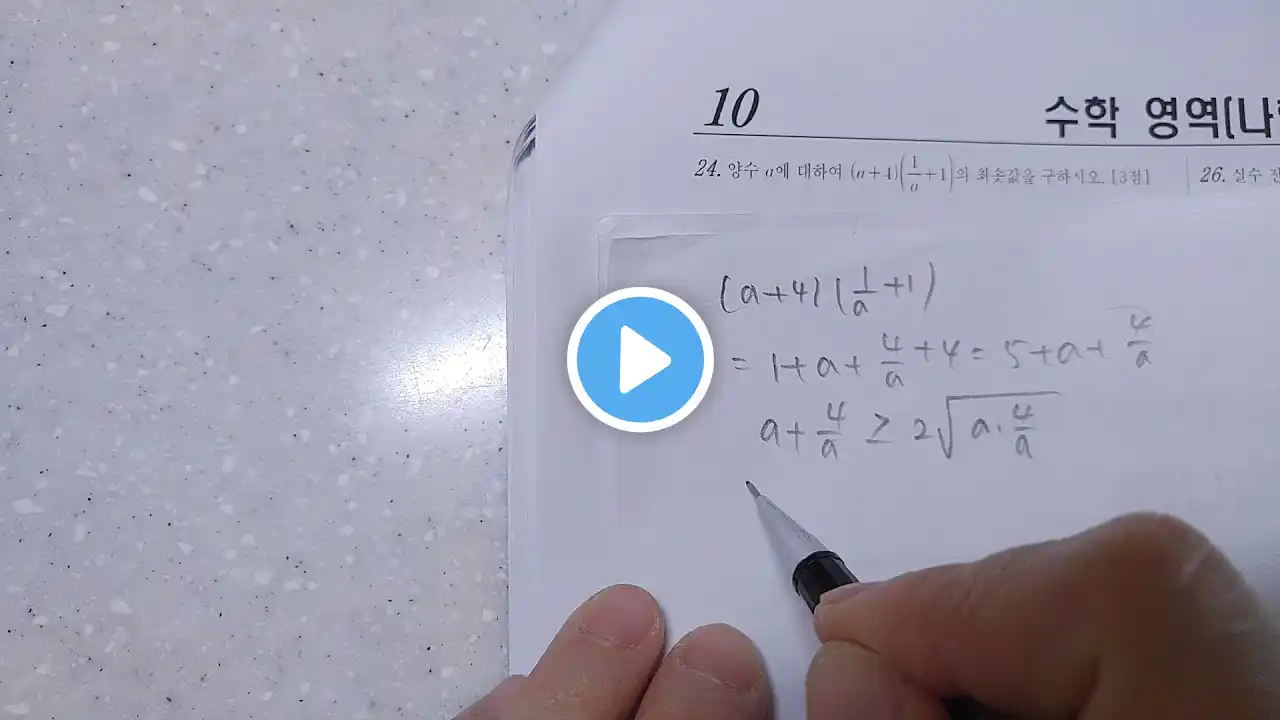 10
수학 영역(나
24. 양수 a에 대하여 (a+4)(1/a+1)의 최솟값을 구하시오. [3점]
26. 실수 전
(a+4)(1/a+1)
= 1+a+4/a+4 = 5+a+4/a
a+4/a ≥ 2√(a·4/a)